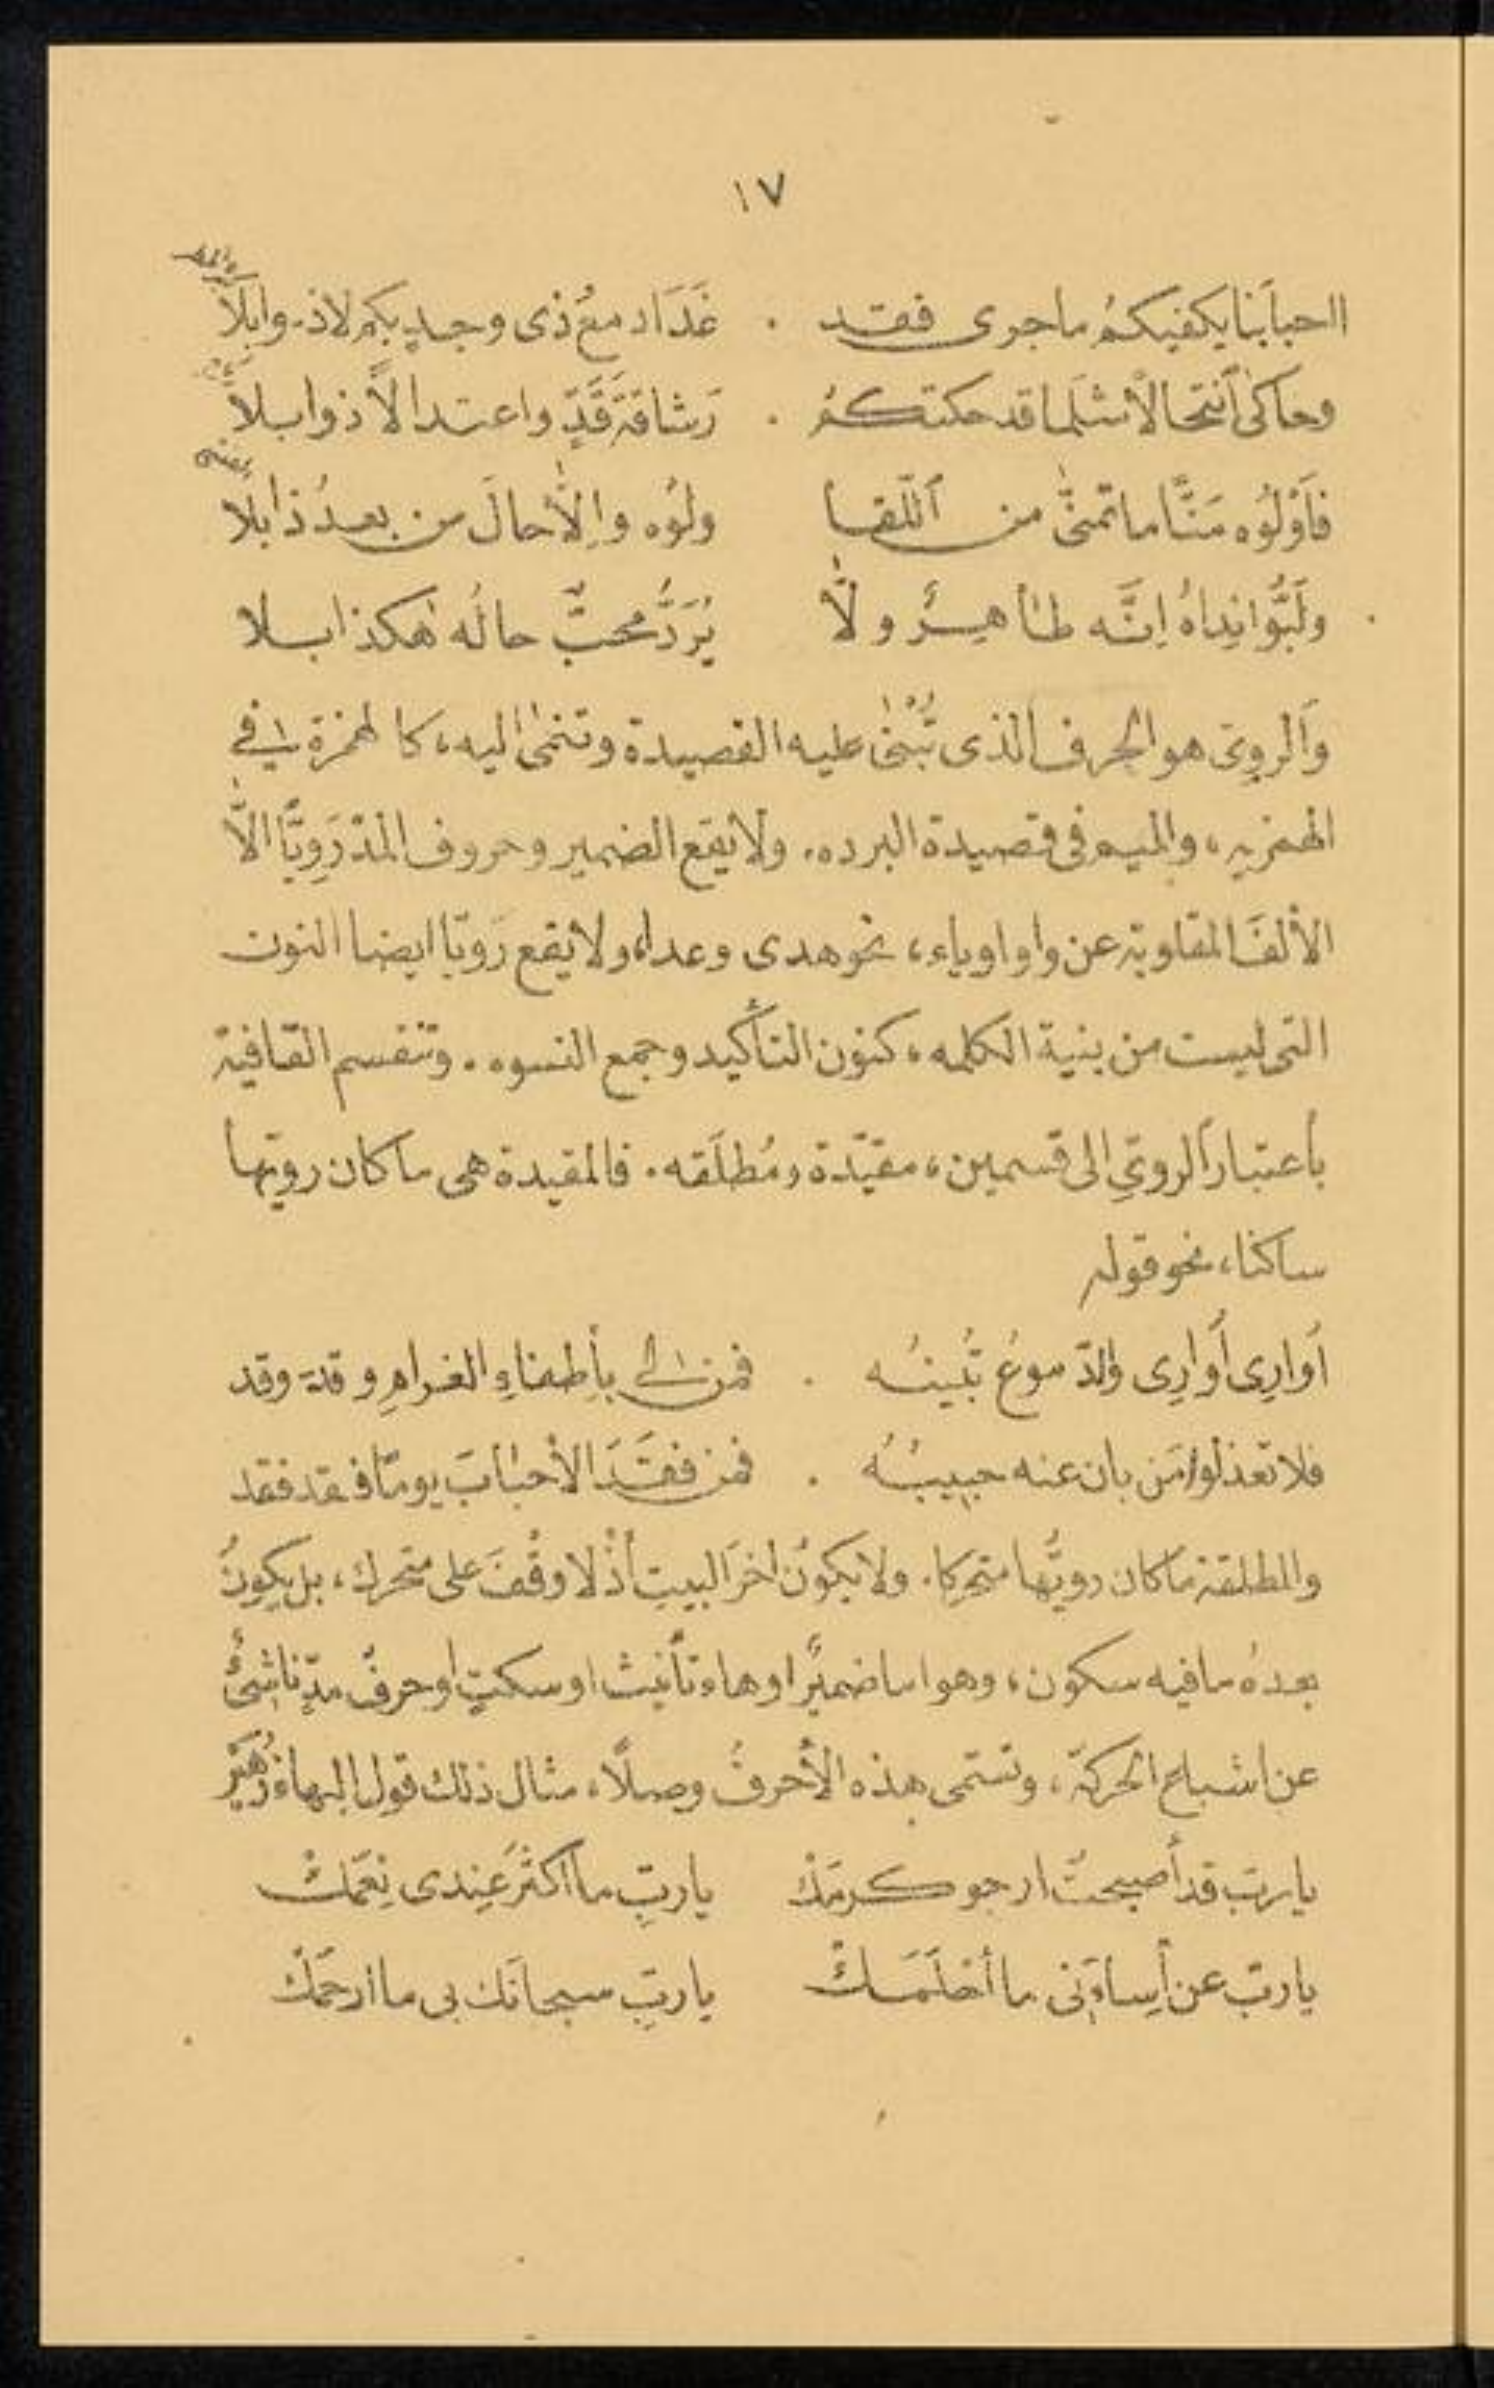 ١٧
أاحبابنا يكفيكمُ ما جرى فقد . غَدَا دمعُ ذى وجدٍ بكم لاذ وابلاَ
وحاكى انتحالاً مثلَما قد حكتكمُ . رَشاقة قَدٍّ واعتدالاً ذوابلاَ
فَأَوْلُوه مَنًّا ما تمنّٰى من ٱللّقا ولُوه وإلّا حالَ من بعدُ ذابلا
ولَبُّوا نِداهُ إنَّه طاهرٌ ولّا يُرَدُّ محبٌّ حالُه هكذا بلا
وٱلروىّ هو الحرف الذى تُبْنٰى عليه القصيدة وتنمى اليه، كالهمزة في
الهمزيه، والميم فى قصيدة البرده. ولا يقع الضمير وحروف المدّ رَوِيًّا الّا
الألفَ المقلوبة عن واو او ياء، نحو هدى وعدا، ولا يقع رَويّا ايضا النون
التى ليست من بنية الكلمه، كنون التأكيد وجمع النسوه. وتنقسم القافية
باعتبار ٱلروىّ الى قسمين، مقيّدة ومُطلَقه. فالمقيدة هى ما كان رويّها
ساكنا، نحو قوله
أُوارِى أُوارِى والدّموعُ تُبينُه . فمن لى باطفاءِ الغرامِ وقد وقد
فلا تعذلوا مَن بان عنه حبيبُهُ . فمن فقَدَ الأحبابَ يومًا فقد فقد
والمطلقة ما كان رويُّها متحركا. ولا يكون اخرَ البيت اذْ لا وقْفَ على متحرك، بل يكونُ
بعدهُ ما فيه سكون، وهو اما ضميرٌ او هاء تأنيث او سكتٍ او حرفُ مدٍّ ناشئٌ
عن اشباع الحركة، وتسمى هذه الأحرفُ وصلاً، مثال ذلك قول البهاء زُهَيْر
يا ربّ قد أصبحتُ ارجو كرمَكْ يا ربِّ ما اكثَرَ عِندى نِعَمَكْ
يا ربّ عن إساءتى ما أحلَمَكْ يا ربِّ سبحانَك بى ما ارحَمَكْ